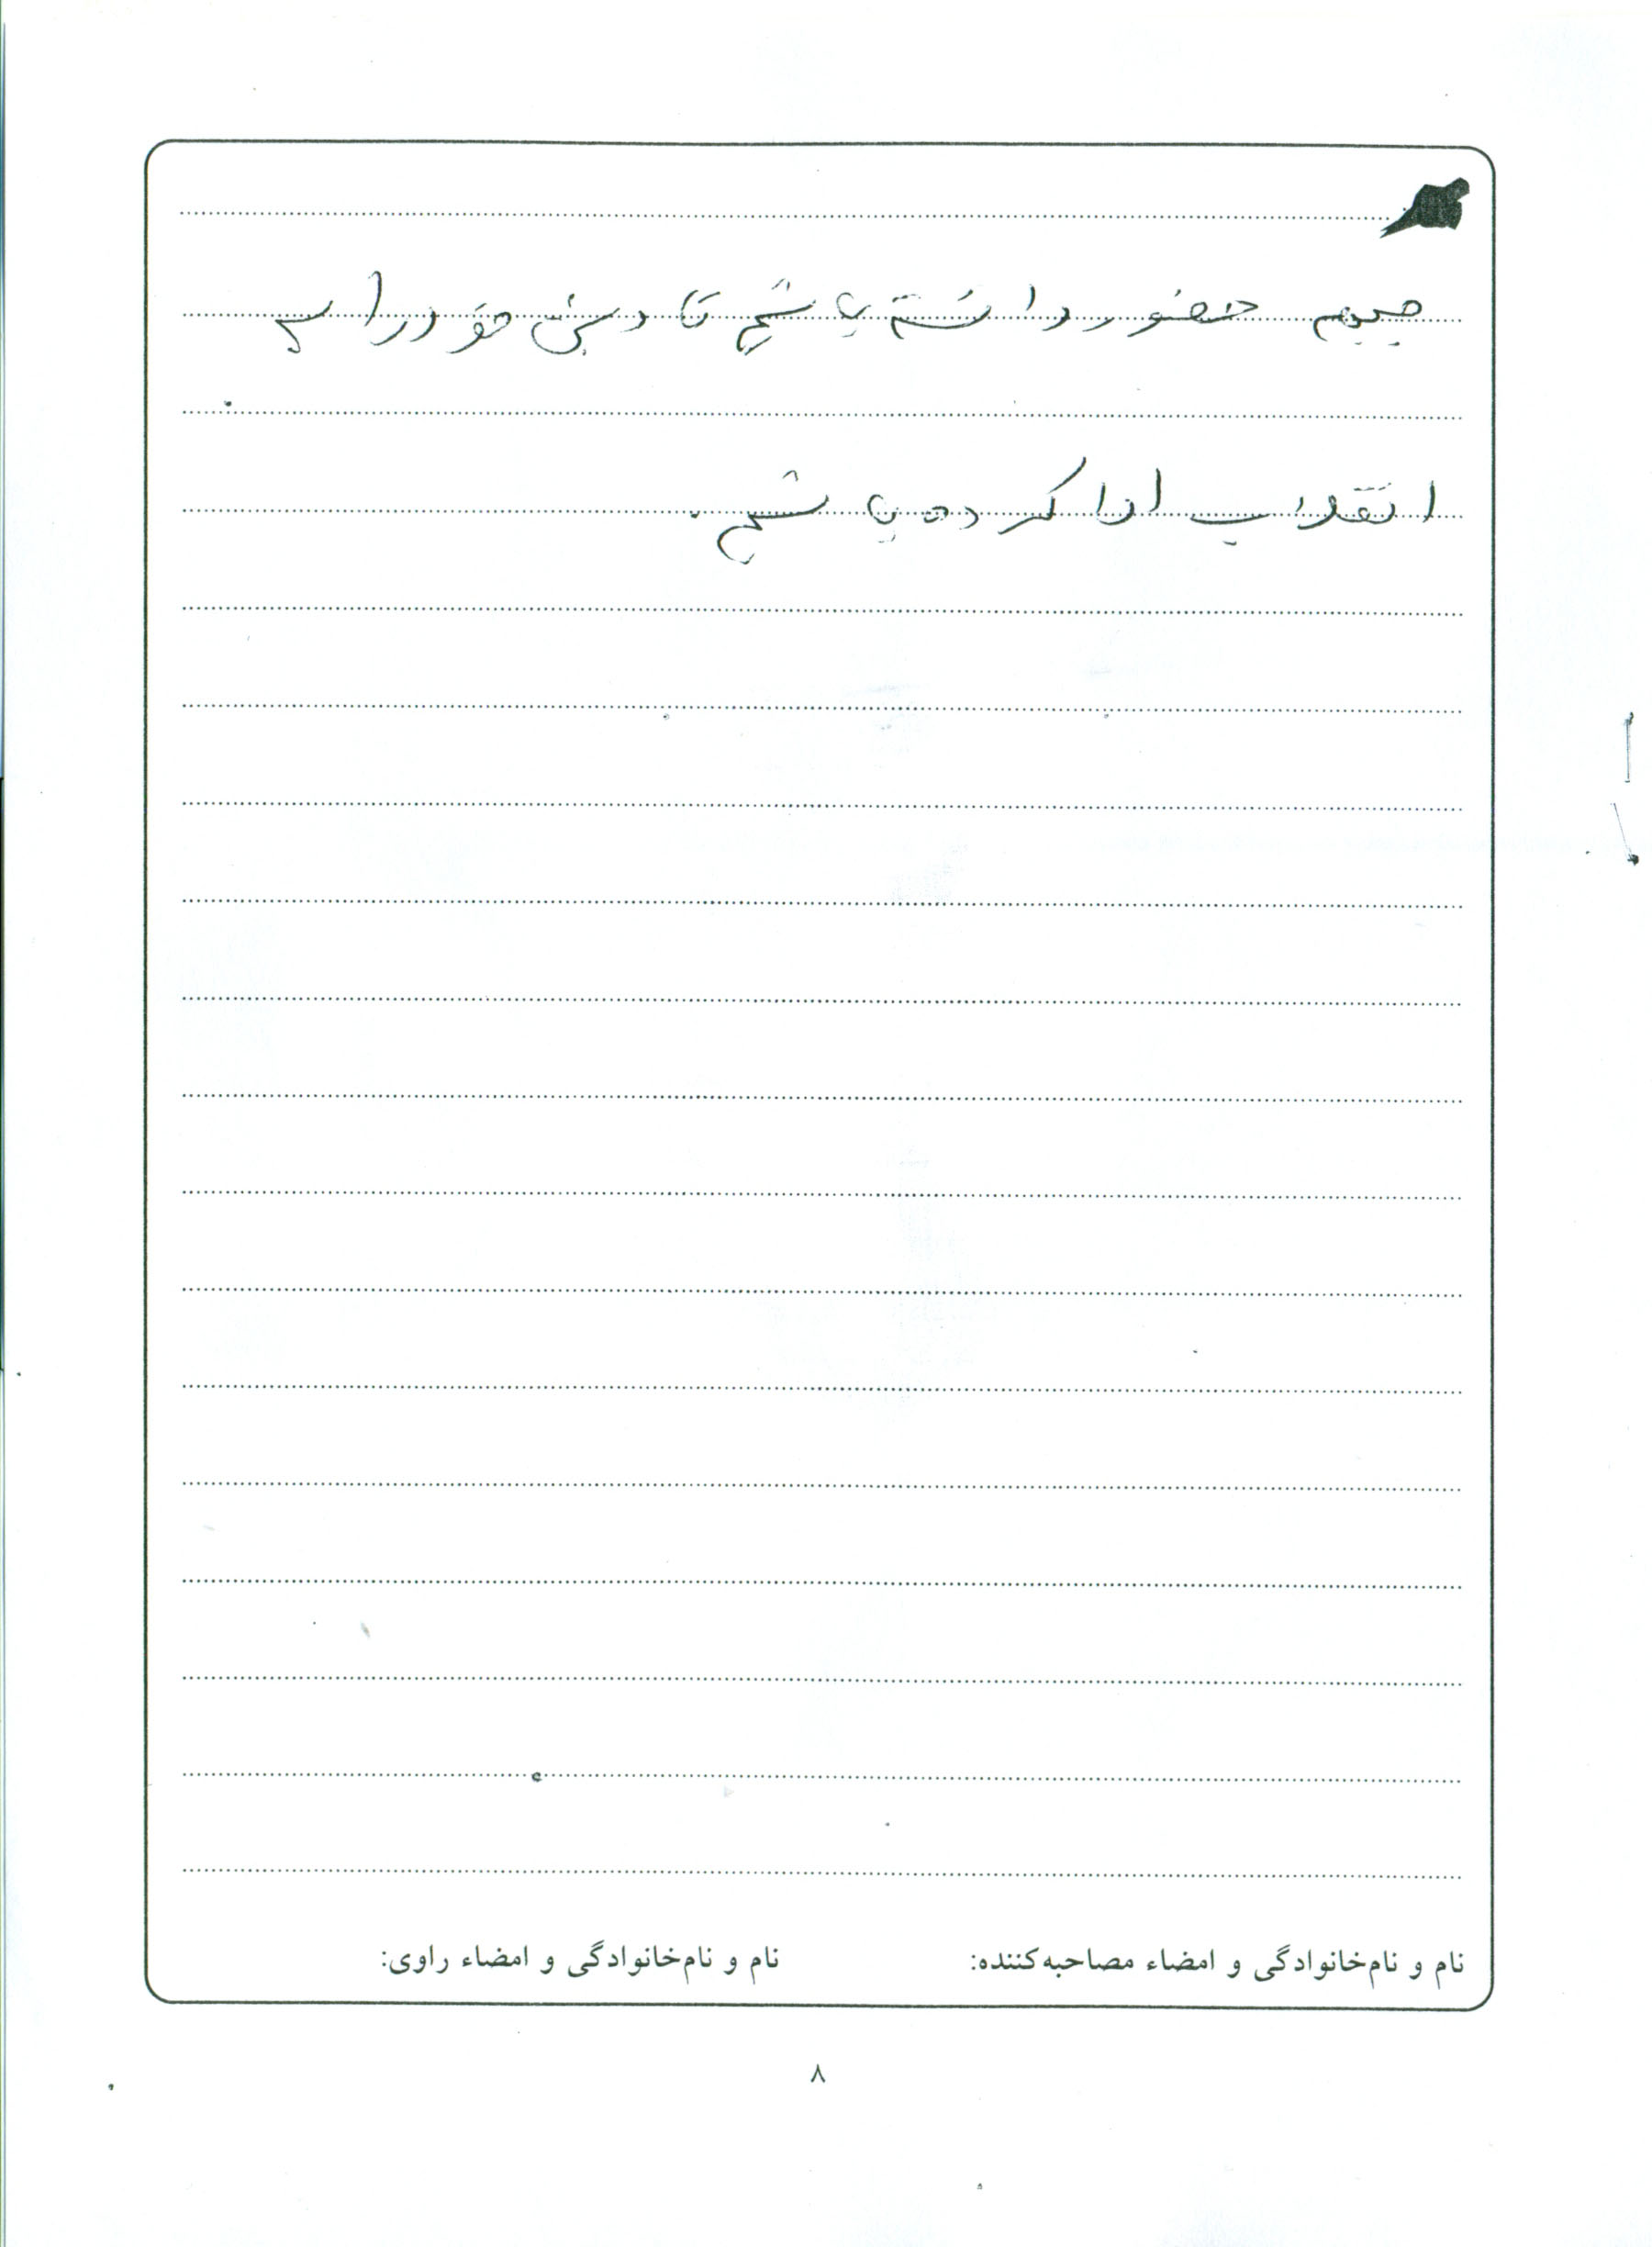 جبهه حضور داشته باشم تا دین خود را به
انقلاب ادا کرده باشم.
نام و نام‌خانوادگی و امضاء مصاحبه‌کننده: نام و نام‌خانوادگی و امضاء راوی:
۸